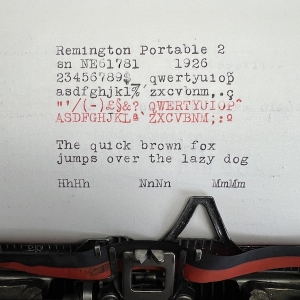 Remington Portable 2
sn NE61781 1926
23456789$_ qwertyuiop
asdfghjkl% zxcvbnm,.ç
"'/(-)£§&? QWERTYUIOP^
ASDFGHJKLª` ZXCVBNM;:º
The quick brown fox
jumps over the lazy dog
HhHh NnNn MmMm